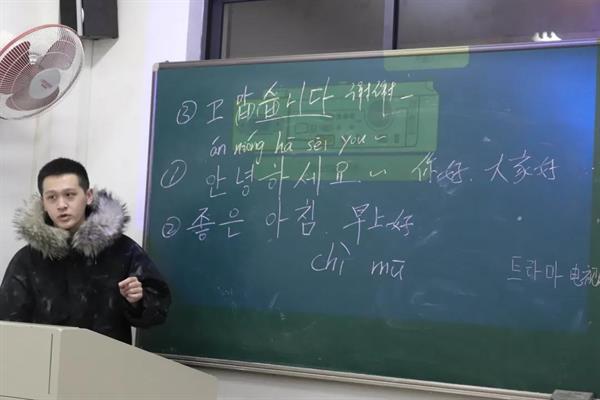 ③ 고맙습니다 谢谢~
án niáng hā sēi you~
① 안녕하세요~ 你好. 大家好
② 좋은 아침. 早上好
chì mū
트라마 电视